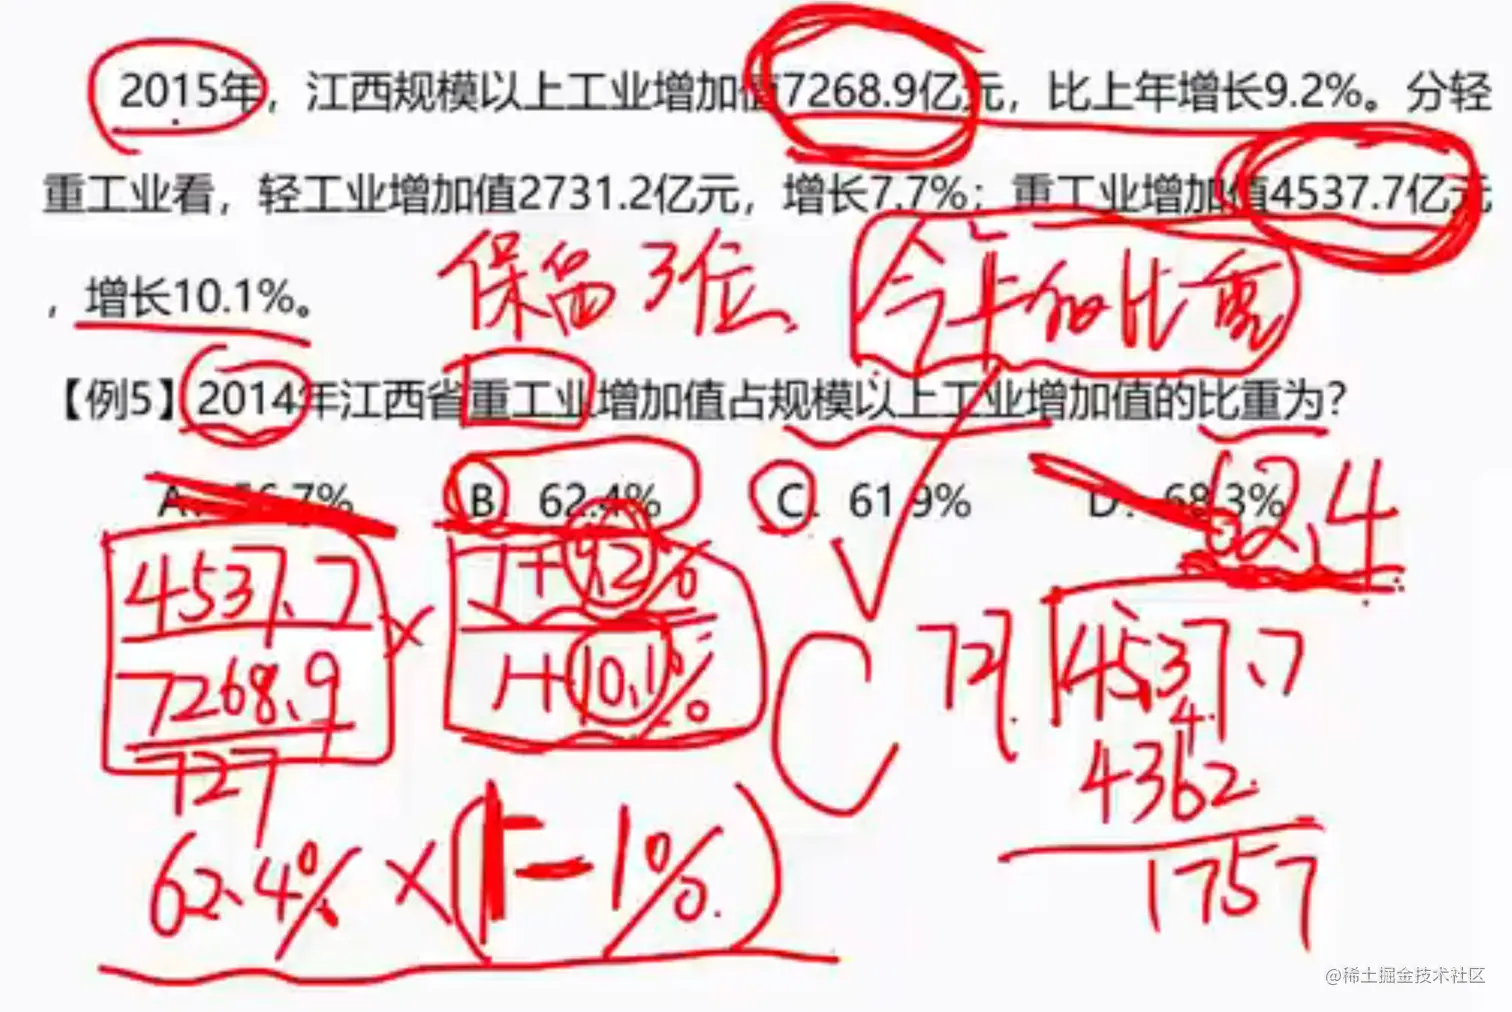 2015年，江西规模以上工业增加值7268.9亿元，比上年增长9.2%。分轻
重工业看，轻工业增加值2731.2亿元，增长7.7%；重工业增加值4537.7亿元
，增长10.1%。
保留3位
今年的比重
【例5】2014年江西省重工业增加值占规模以上工业增加值的比重为？
A. 56.7% B. 62.4% C. 61.9% D. 68.3%
62.4
4537.7
7268.9
727
×
1+9.2%
1+10.1%
C
727 4537.7
4
4362
1757
62.4% × (1-1%)
@稀土掘金技术社区